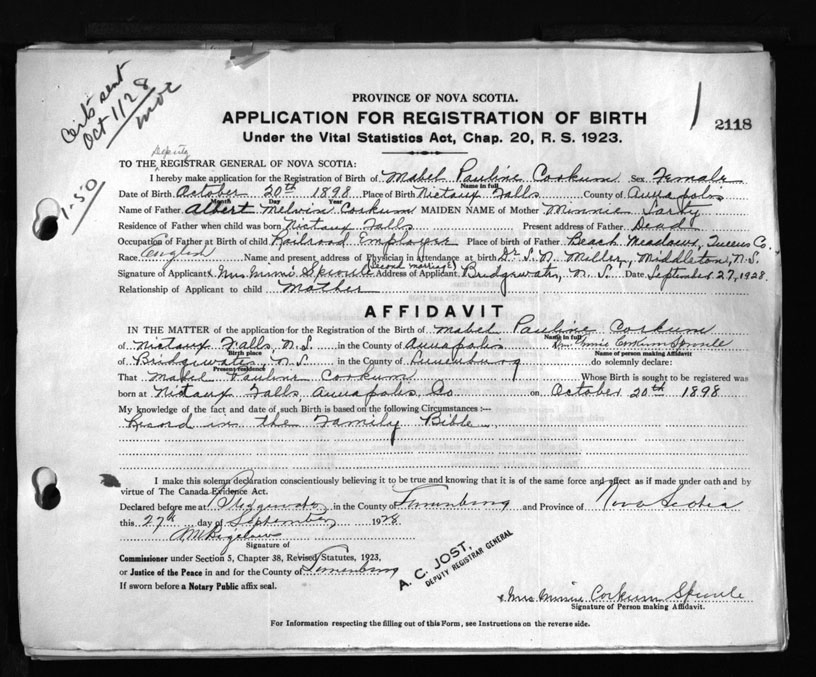 Certs sent
Oct 1/28
1.50
PROVINCE OF NOVA SCOTIA.
APPLICATION FOR REGISTRATION OF BIRTH
Under the Vital Statistics Act, Chap. 20, R. S. 1923.
2118
Deputy
TO THE REGISTRAR GENERAL OF NOVA SCOTIA:
I hereby make application for the Registration of Birth of Mabel Pauline Corkum Sex Female
Name in full
Date of Birth October 20th 1898 Place of Birth Nictaux Falls County of Annapolis
Month Day Year
Name of Father Albert Melvin Corkum MAIDEN NAME of Mother Minnie
Residence of Father when child was born Nictaux Falls Present address of Father Dead
Occupation of Father at Birth of child Railroad Employee Place of birth of Father Beach Meadows, Queens Co.
Race English Name and present address of Physician in attendance at birth Dr. S. N. Miller, Middleton, N.S.
(Second marriage)
Signature of Applicant x Mrs Minnie Sproule Address of Applicant Bridgewater, N. S. Date September 27, 1928.
Relationship of Applicant to child Mother
AFFIDAVIT
IN THE MATTER of the application for the Registration of the Birth of Mabel Pauline Corkum
Name in full
of Nictaux Falls, N.S. in the County of Annapolis Minnie Corkum Sproule
Birth place Name of person making Affidavit
of Bridgewater, N. S. in the County of Lunenburg do solemnly declare:
Present residence
That Mabel Pauline Corkum Whose Birth is sought to be registered was
born at Nictaux Falls, Annapolis, Co on October 20th 1898
My knowledge of the fact and date of such Birth is based on the following Circumstances:—
Record in the Family Bible
I make this solemn declaration conscientiously believing it to be true and knowing that it is of the same force and effect as if made under oath and by
virtue of The Canada Evidence Act.
Declared before me at Bridgewater in the County of Lunenburg and Province of Nova Scotia
this 27th day of September 1928
Signature of
Commissioner under Section 5, Chapter 38, Revised Statutes, 1923,
or Justice of the Peace in and for the County of Lunenburg
If sworn before a Notary Public affix seal.
A. C. JOST,
DEPUTY REGISTRAR GENERAL
x Mrs Minnie Corkum Sproule
Signature of Person making Affidavit.
For Information respecting the filling out of this Form, see Instructions on the reverse side.